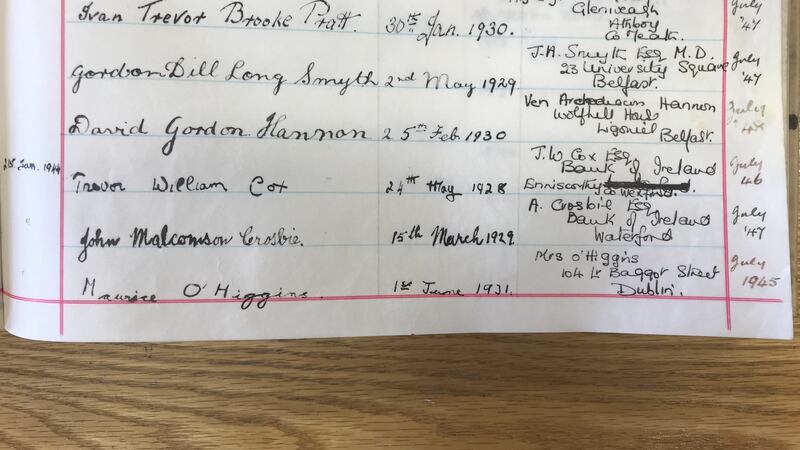 Glenveagh
Ivan Trevor Brooke Pratt. 30th Jan. 1930. Athboy July
Co Meath. '47
J.A. Smyth Esq M.D. July
Gordon Dill Long Smyth 2nd May 1929. 23 University Square '47
Belfast.
Ven Hannon July
David Gordon Hannon 25th Feb 1930 Wolfhill
Ligoniel Belfast.
Jan. 1944 J.W Cox Esq July
Bank of Ireland 46
Trevor William Cox 24th May 1928 Enniscorthy
Co Wexford.
A. Crosbie Esq July
John Malcomson Crosbie. 15th March 1929. Bank of Ireland '47
Waterford
Mrs O'Higgins July
Maurice O'Higgins. 1st June 1931. 104 Lr Baggot Street 1945
Dublin.